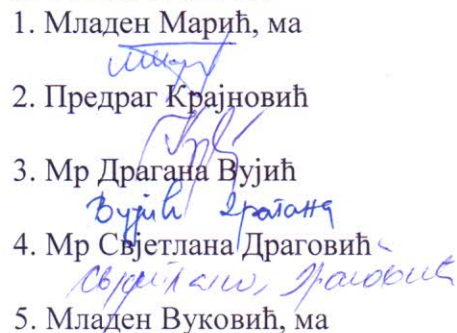 1. Младен Марић, ма
2. Предраг Крајновић
3. Мр Драгана Вујић
Вујић Драгана
4. Мр Свјетлана Драговић
Свјетлана Драговић
5. Младен Вуковић, ма